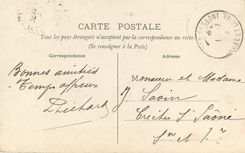 CARTE POSTALE
Tous les pays étrangers n'acceptent pas la correspondance au recto.
(Se renseigner à la Poste)
Correspondance
Adresse
Bonnes amitiés
Temps affreux
Monsieur et Madame
J. Savin
Crêches S/ Saône
S. et L.